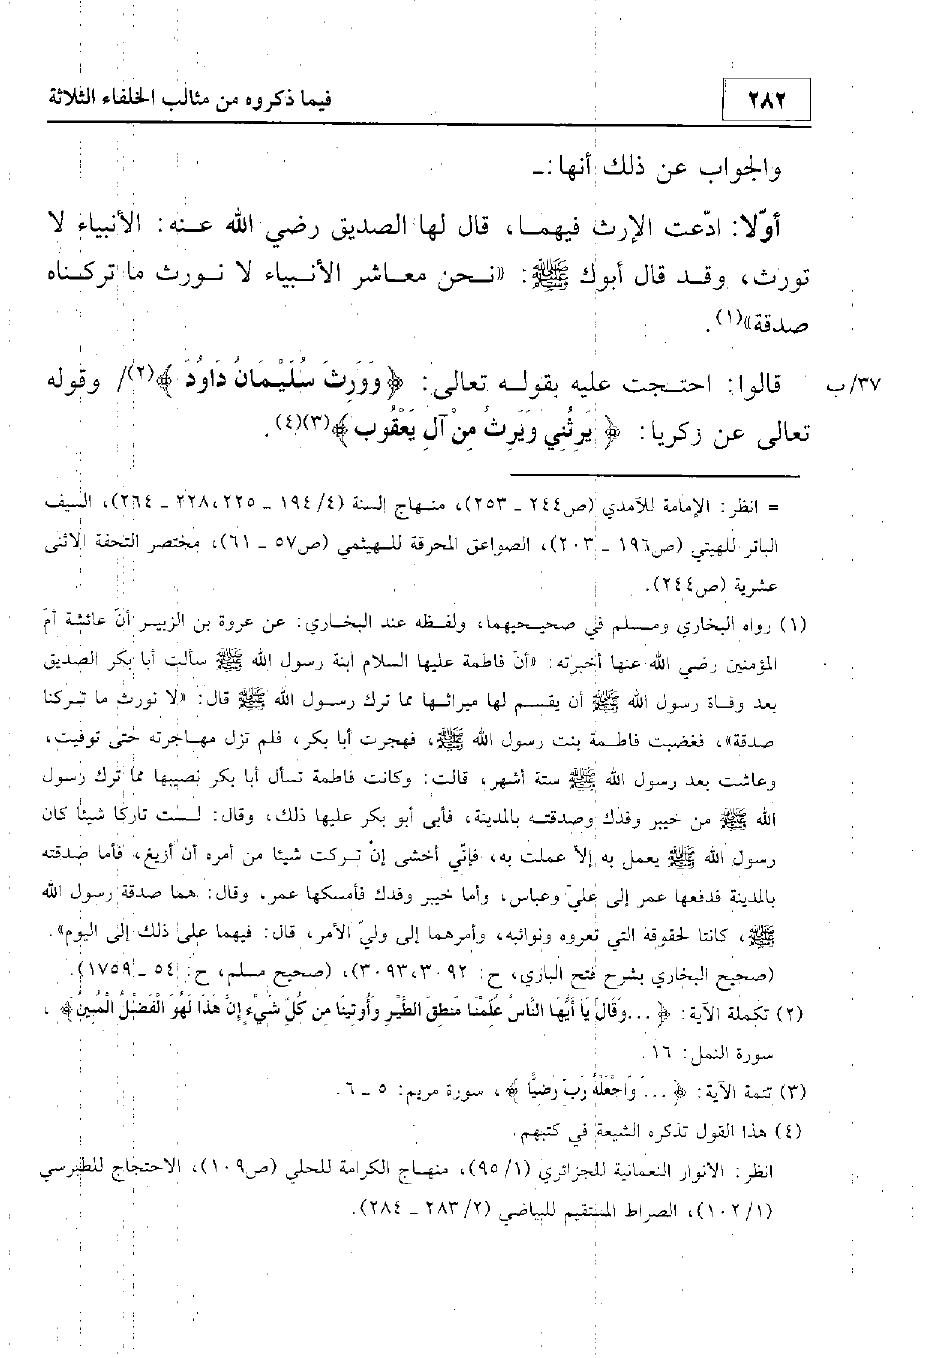 ٢٨٢
فيما ذكروه من مثالب الخلفاء الثلاثة
والجواب عن ذلك أنها:ـ
أوّلا: ادّعت الإرث فيهمـا، قال لها الصديق رضي الله عنـه: الأنبياء لا
تورث، وقـد قال أبوك ﷺ: «نـحن معـاشر الأنـبياء لا نـورث ما تركـناه
صدقة»(١).
٣٧/ب قالوا: احتـجت عليه بقولـه تعالى: ﴿وَوَرِثَ سُلَيْمَانُ دَاوُدَ﴾(٢)/ وقوله
تعالى عن زكريا: ﴿ يَرِثُنِي وَيَرِثُ مِنْ آلِ يَعْقُوبَ﴾(٣)(٤).
= انظر: الإمامة للآمدي (ص٢٤٤ ـ ٢٥٣)، منهـاج السنة (٤/ ١٩٤ ـ ٢٢٥، ٢٢٨ ـ ٢٦٤)، السيف
الباتر للهيتي (ص١٩٦ ـ ٢٠٣)، الصواعق المحرقة للـهيثمي (ص٥٧ ـ ٦١)، مختصر التحفة الاثنى
عشرية (ص٢٤٤).
(١) رواه البخاري ومسـلم في صحيـحيهما، ولفـظه عند البخـاري: عن عروة بن الزبيـر أنّ عائشة أم
المؤمنين رضي الله عنها أخبرته: «أنّ فاطمة عليها السلام ابنة رسول الله ﷺ سألت أبا بكر الصديق
بعد وفـاة رسول الله ﷺ أن يقسـم لها ميراثـها مما ترك رسـول الله ﷺ قال: «لا نورث ما تـركنا
صدقة»، فغضبت فاطـمة بنت رسول الله ﷺ، فهجرت أبا بكر، فلم تزل مهـاجرته حتى توفيت،
وعاشت بعد رسول الله ﷺ ستة أشهر، قالت: وكانت فاطمة تسأل أبا بكر نصيبها مما ترك رسول
الله ﷺ من خيبر وفدك وصدقتـه بالمدينة، فأبى أبو بكر عليها ذلك، وقال: لـست تاركا شيئا كان
رسول الله ﷺ يعمل به إلاّ عملت به، فإنّي أخشى إنْ تـركت شيئا من أمره أن أزيغ، فأما صدقته
بالمدينة فدفعها عمر إلى عليّ وعباس، وأما خيبر وفدك فأمسكها عمر، وقال: هما صدقة رسول الله
ﷺ، كانتا لحقوقه التي تعروه ونوائبه، وأمرهما إلى وليّ الأمر، قال: فهما على ذلك إلى اليوم».
(صحيح البخاري بشرح فتح الباري، ح: ٣٠٩٢، ٣٠٩٣)، (صحيح مسلم، ح: ٥٤ ـ ١٧٥٩).
(٢) تكملة الآية: ﴿ ...وَقَالَ يَا أَيُّهَا النَّاسُ عُلِّمْنَا مَنطِقَ الطَّيْرِ وَأُوتِينَا مِن كُلِّ شَيْءٍ إِنَّ هَذَا لَهُوَ الْفَضْلُ الْمُبِينُ﴾،
سورة النمل: ١٦.
(٣) تتمة الآية: ﴿ ... وَاجْعَلْهُ رَبِّ رَضِيًّا ﴾، سورة مريم: ٥ ـ ٦.
(٤) هذا القول تذكره الشيعة في كتبهم.
انظر: الأنوار النعمانية للجزائري (١/ ٩٥)، منهـاج الكرامة للحلي (ص١٠٩)، الاحتجاج للطبرسي
(١/ ١٠٢)، الصراط المستقيم للبياضي (٢/ ٢٨٣ ـ ٢٨٤).